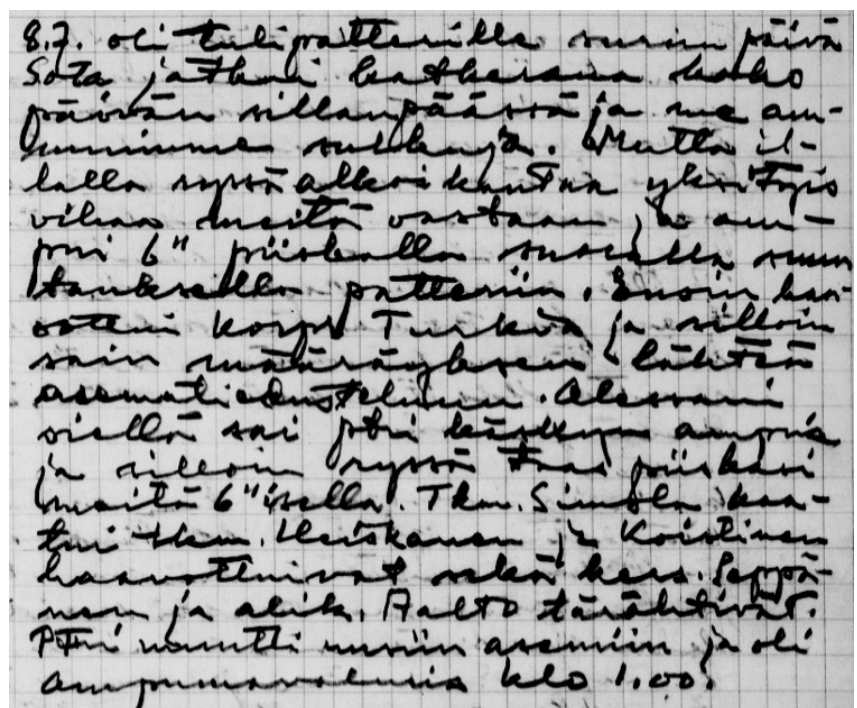 8.7. oli tulipatterille surun päivä
Sota jatkui katkerana koko
päivän sillanpäässä ja me am-
muimme sulkuja. Mutta il-
lalla ryssä alkoi kantaa yksityis
vihaa meitä vastaan ja am-
pui 6" piiskalla suoralla suun
tauksella patteriin. Ensin haa-
voittui korpr Turkia ja silloin
sain määräyksen lähteä
asematiedusteluun.
siellä sai ptri käskyn ampua
ja silloin ryssä taas piiskasi
meitä 6"isella. Tkm. Simola kaa-
tui tkm. Heiskanen ja Koistinen
haavoittuivat sekä kers. Seppä-
nen ja alik. Aalto tärähtivät.
Ptri muutti uusiin asemiin ja oli
ampumavalmis klo 1.00.